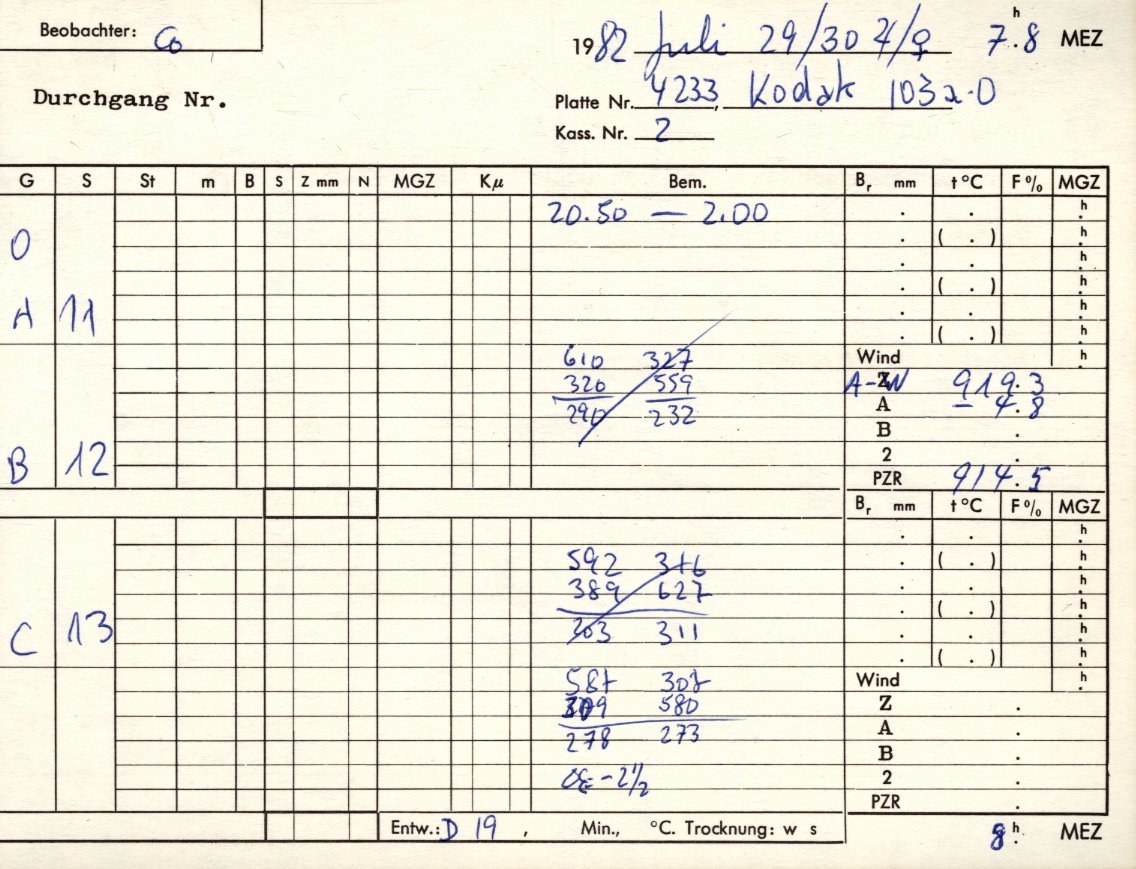 Beobachter: Co
1982 Juli 29/30 ♃/♀ 7.ʰ8 MEZ
Durchgang Nr.
Platte Nr. 4233, Kodak 103a-O
Kass. Nr. 2
G S St m B S Z mm N MGZ Kμ Bem. Bᵣ mm t °C F % MGZ
20.50 — 2.00 . . h.
O . ( . ) h.
. . h.
. ( . ) h.
A 11 . . h.
. ( . ) h.
610 327 Wind h.
320 559 A-W Z 919.3
290 232 A - 4.8
B .
B 12 2 .
PZR 914.5
Bᵣ mm t °C F % MGZ
. . h.
592 316 . ( . ) h.
389 627 . . h.
. ( . ) h.
C 13 203 311 . . h.
. ( . ) h.
587 307 Wind h.
309 580 Z .
278 273 A .
B .
OE - 2½ 2 .
PZR .
Entw.: D 19 , Min., °C. Trocknung: w s 8 ʰ. MEZ